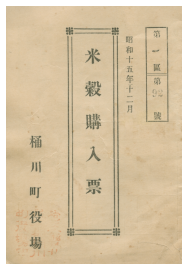 第一區第92號
昭和十五年十二月
米穀購入票
桶川町役場